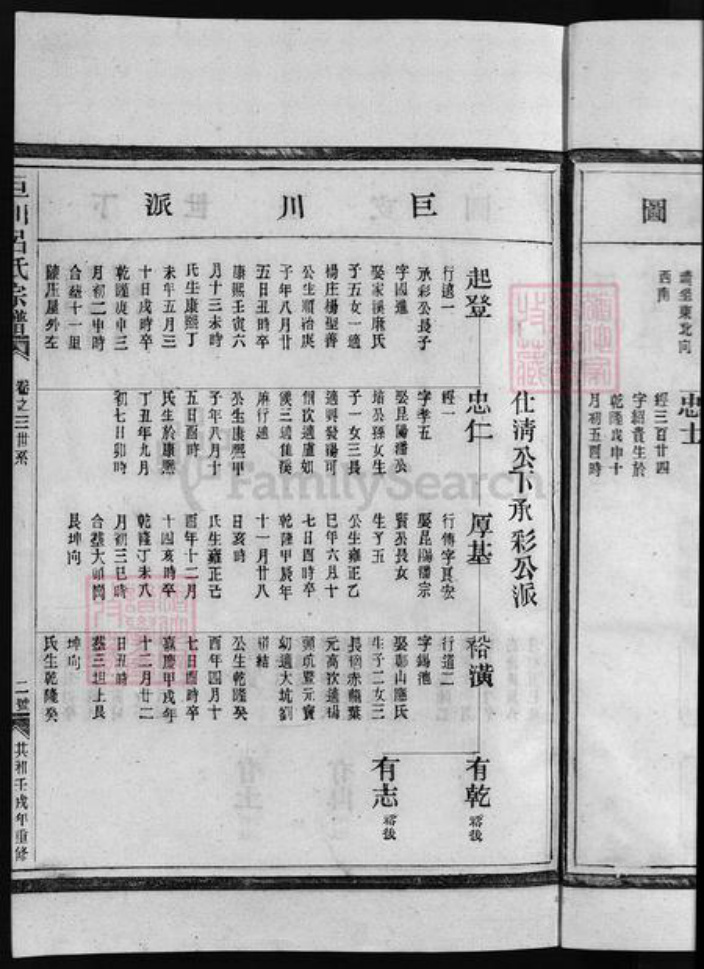 圖
西南
忠士
經三百廿四
字紹賁生於
乾隆戊申十
月初五酉時
巨川派
仕淸公下承彩公派
起登
行遠一
承彩公長子
字國進
娶家溪康氏
子五女一適
楊庄楊聖善
公生順治庚
子年八月廿
五日丑時卒
康熙壬寅六
月十三未時
氏生康熙丁
未年五月三
十日戌時卒
乾隆庚申三
月初二申時
合塟十一里
陵庄屋外左
忠仁
經一
字孝五
娶昆陽潘公
培公孫女生
子一女三長
適興發陽可
次適盧如
三適佳溪
麻行遠
公生康熙甲
子年八月十
五日酉時
氏生於康熙
丁丑年九月
初七日卯時
厚基
行傳字真宏
娶昆陽潘宗
賢公長女
生子五
公生雍正乙
巳年六月十
七日酉時卒
乾隆甲辰年
十一月廿八
日亥時
氏生雍正己
酉年十二月
十四亥時卒
乾隆丁未八
月初三巳時
合塟大頭岡
艮坤向
裕潢
行道二
字錫池
娶彰山應氏
生子二女三
長適赤嶺葉
元高次適楊
元寶
幼適大坑劉
結
公生乾隆癸
酉年四月十
七日酉時卒
嘉慶甲戌年
十二月廿二
日丑時
塟三坦上艮
坤向
氏生乾隆癸
有乾 裕後
有志 裕後
巨川呂氏宗譜 卷之三世系 二號 共和壬戌年重修
FamilySearch